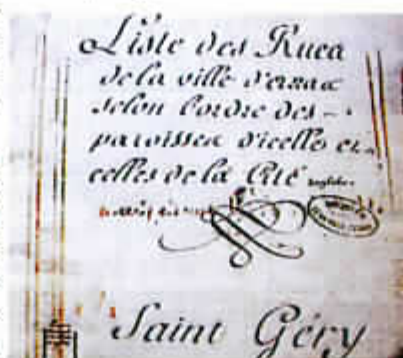 Liste des Rues
de la ville d'arras
selon l'ordre des
paroisses d'icelle et
celles de la Cité
Saint Géry